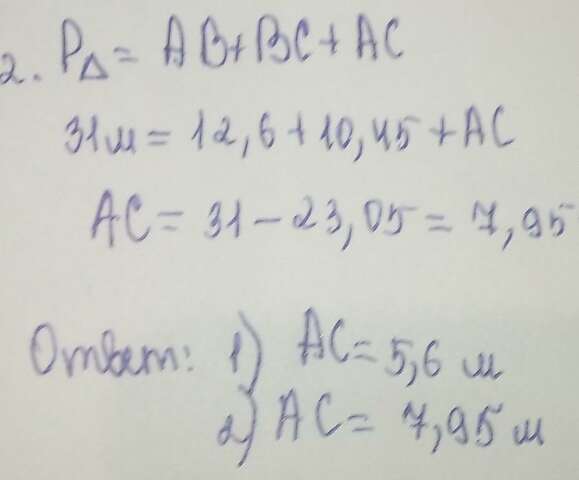 2. P△ = AB+BC+AC
31м = 12,6+10,45+AC
AC = 31-23,05 = 7,95
Ответ: 1) AC = 5,6 м
2) AC = 7,95 м